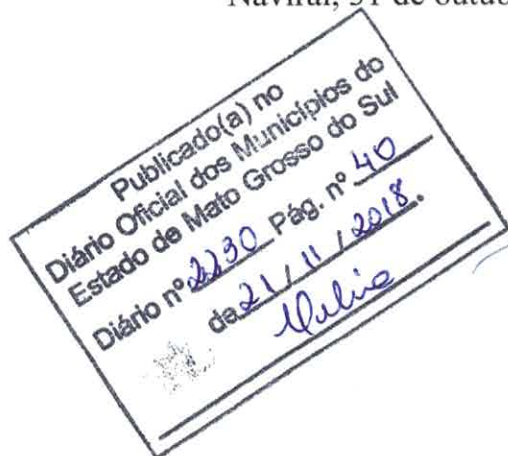 Naviraí, 31 de outub
Publicado(a) no
Diário Oficial dos Municípios do
Estado de Mato Grosso do Sul
Diário nº 2230 Pág. nº 40
de 21 / 11 / 2018.